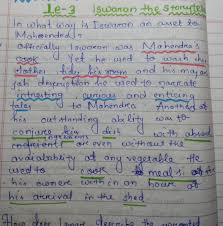 Le-3 Iswaran the storyteller
In what way is Iswaran an asset to
Mahendra?
Officially Iswaran was Mahendra's
cook Yet he used to wash his
clother tidy his room and his major
job description he used to narrate
intresting curious and enticing
tales to Mahendra Another of
his outstanding ability was to
conjure him dish with absent
ingredients
or even without the
availability of any vegetable He
used to cook meals for
his owner within an hour of
his arrival in the shed
How does describe the